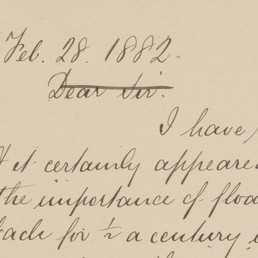 Feb. 28. 1882.
Dear Sir.
I have
it certainly appeare
the importance of floa
back for ½ a century